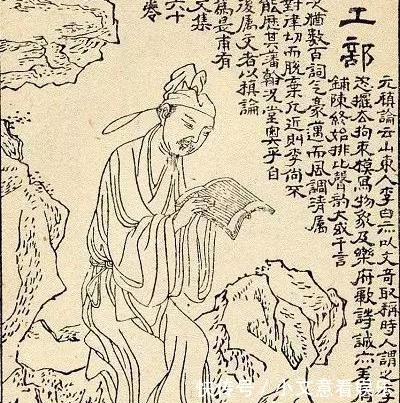 工部
元稹論云山東人李白亦以文奇取稱時人謂之李
恣擺去拘束模寫物象及樂府歌詩誠亦差
鋪陳終始排比聲韵大或千言
次猶數百詞气豪邁而風調清屬
對律切而脫棄凡近則李尚不
能歷其藩翰况堂奧乎白
後屬文者以稹論
為是甫有
文集
六十
卷
快传号 / 小文意看娱乐